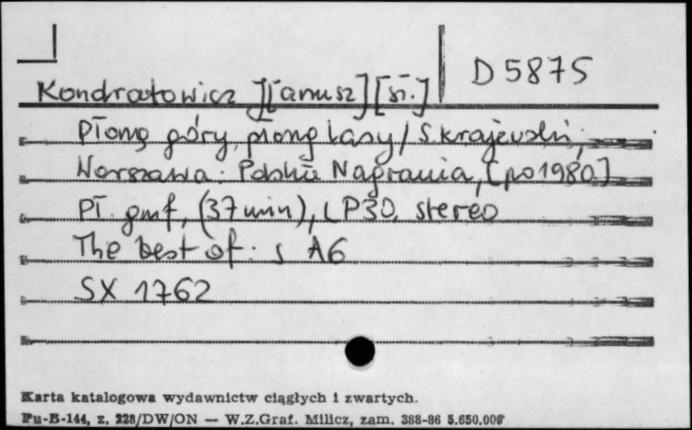 D 5875
Kondratowicz J[anusz] [sł.]
Płoną góry, płoną lasy / S. Krajewski,
Warszawa: Polskie Nagrania, [po 1980]
Pł. gmf, (37 min), LP30, stereo
The best of: s A6
SX 1762
Karta katalogowa wydawnictw ciągłych i zwartych.
Pu-B-144, z. 228/DW/ON — W.Z.Graf. Milicz, zam. 388-86 5.650.000